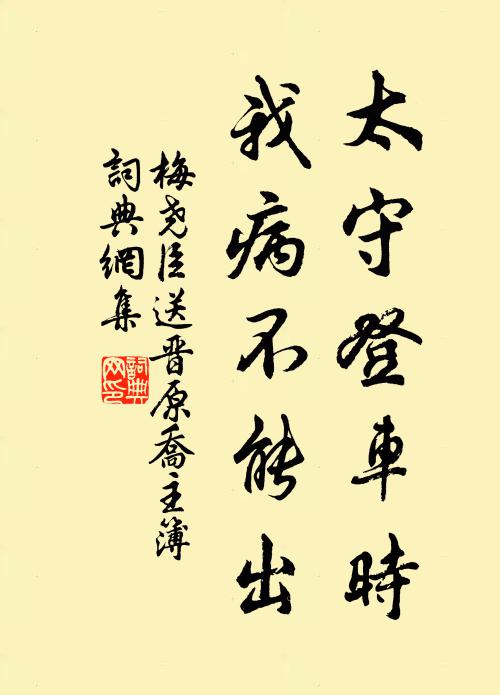 太守登車時
我病不能出
梅堯臣送晋原喬主簿
詞典網集
詞典網印